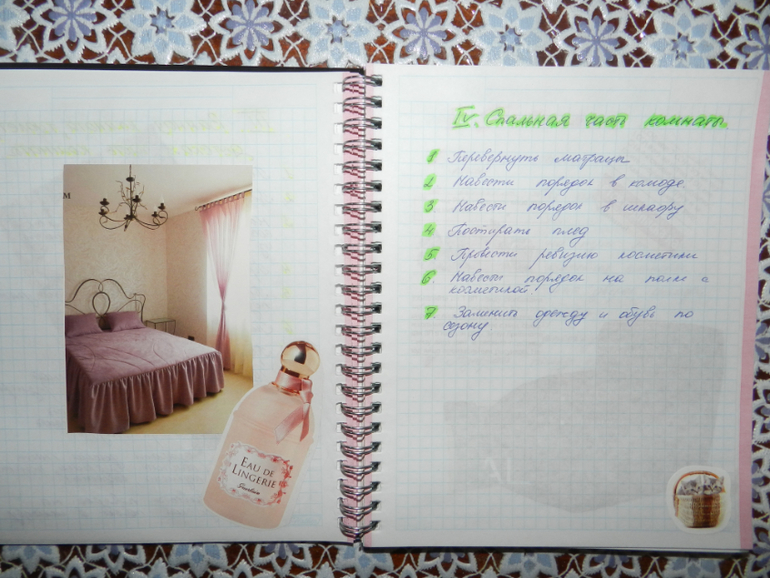 м
EAU DE
LINGERIE
Guerlain
IV. Спальная часть комнаты.
1 Перевернуть матрацы
2 Навести порядок в комоде
3 Навести порядок в шкафу
4 Постирать плед
5. Провести ревизию косметики
6. Навест порядок на полке с
косметикой
7. Заменить одежду и обувь по
сезону